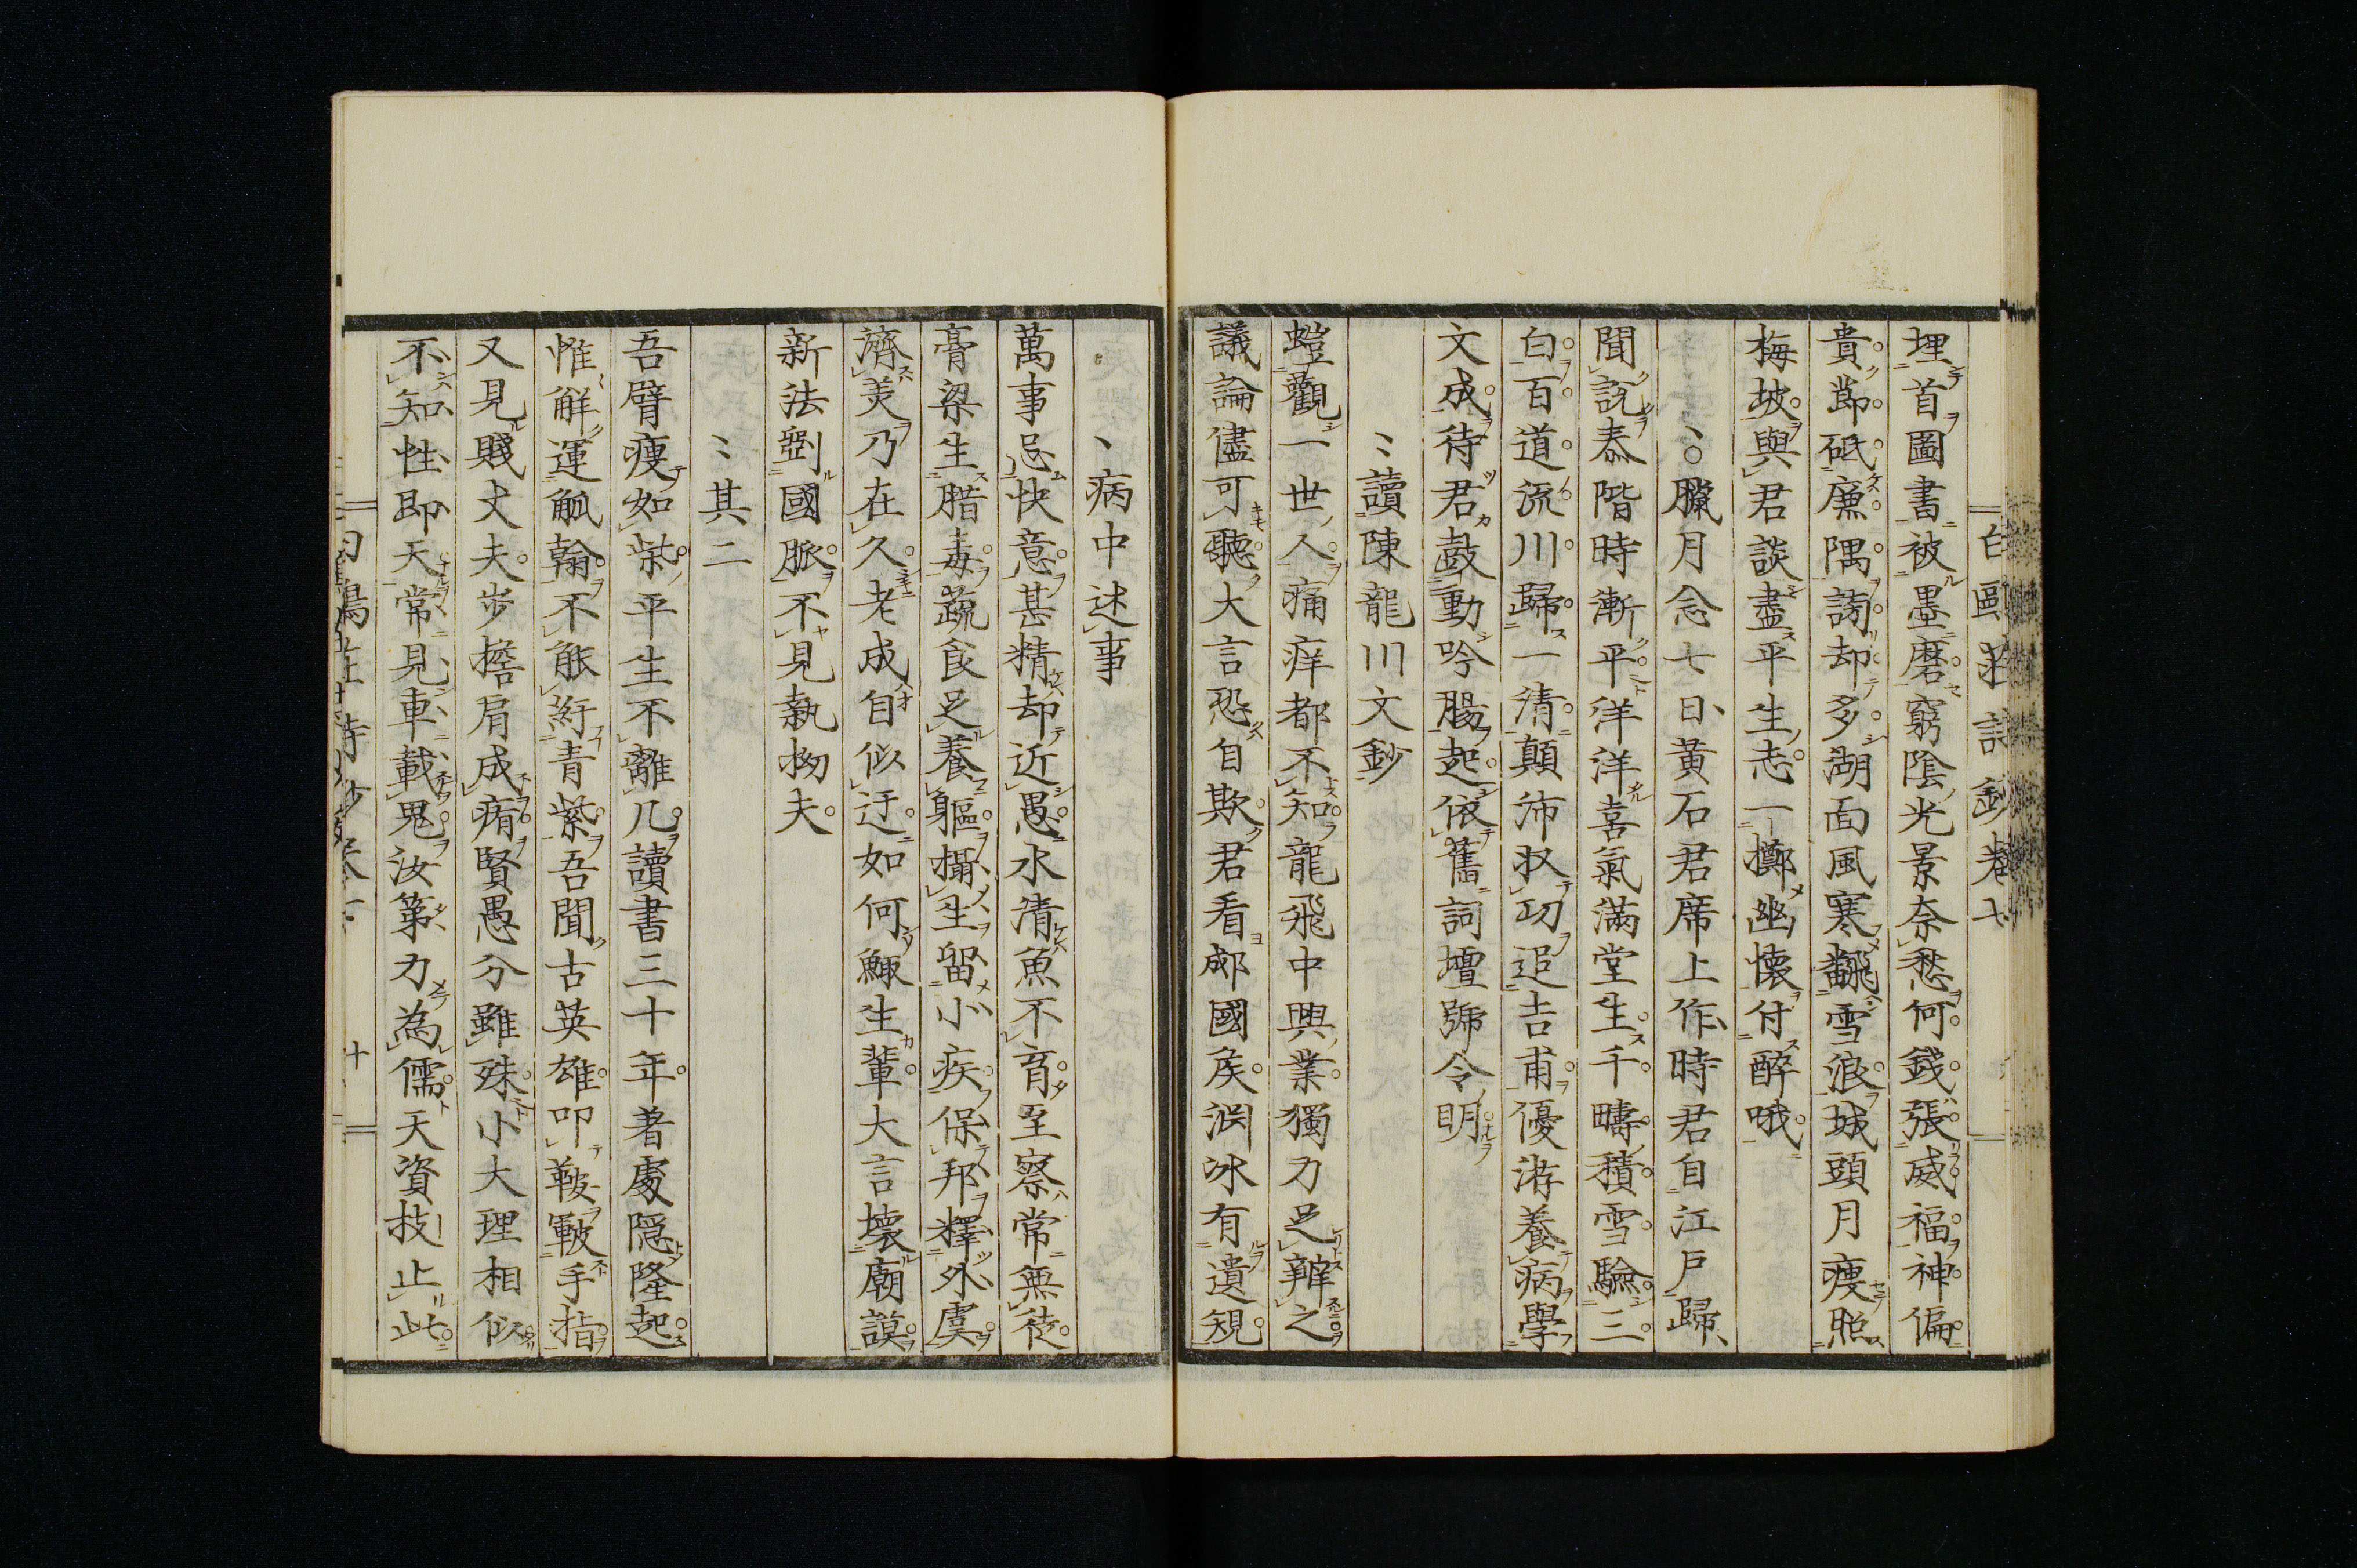 埋首圖書被墨磨窮陰光景奈愁何錢張威福神偏
貴節砥廉隅謗却多湖面風寒飜雪浪城頭月痩照
梅坡與君談盡平生志一擲幽懷付醉哦
臘月念七日黃石君席上作時君自江戶歸
聞說泰階時漸平洋洋喜氣滿堂生千疇積雪驗三
白百道流川歸一清顛沛収功追吉甫優游養病學
文成待君鼓動吟腸起依舊詞壇號令明
讀陳龍川文鈔
螘觀一世人痛痒都不知龍飛中興業獨力足辦之
議論儘可聽大言恐自欺君看鄰國矦淵冰有遺規
病中述事
萬事忌快意甚精却近愚水清魚不育至察常無徒
膏粱生腊毒蔬食足養軀攝生留小疾保邦釋外虞
濟美乃在久老成自似迂如何鯫生輩大言壞廟謨
新法劉國脈不見執拗夫
其二
吾臂痩如柴平生不離几讀書三十年著處隱隆起
惟解運觚翰不能紆青紫吾聞古英雄叩鞍皸手指
又見賤丈夫步擔肩成痏賢愚分雖殊小大理相似
不知性即天常見車載鬼汝第力為儒天資技止此
十